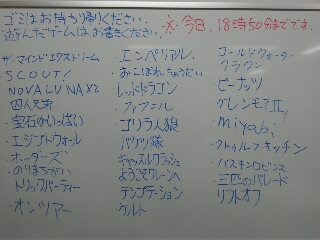 ゴミはお持ち帰りください。
遊んだゲームは、お書きください。
※今日、18時50分までです。
ザ・マインドエクストリーム
SCOUT!
NOVALUNA×2
四人兄弟
宝石がいっぱい
エジプトウォール
ボーダーズ
のりまちがい
トリックパーティー
オンツアー
エンペリアル
おこぼれちょうだい
レッドドラゴン
ゴリラ人狼
バケツ隊
キャッスルクラッシュ
ようこそクレーンへ
テンプテーション
ケルト
ゴールドウォーター
クラウン
ピーナッツ
グレンモアⅡ
miyabi
クトゥルフ・キッチン
バスキンロビンス
三匹のパレード
リフトオフ